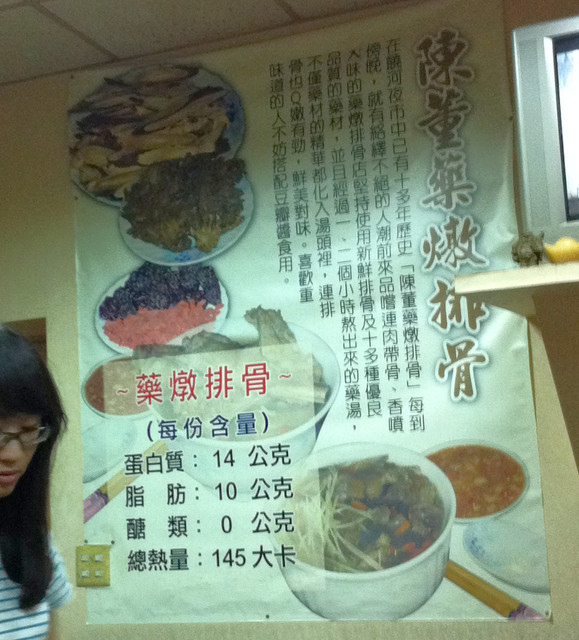 陳董藥燉排骨
在饒河夜市中已有十多年歷史「陳董藥燉排骨」每到
傍晚，就有絡繹不絕的人潮前來品嚐連肉帶骨、香噴
入味的藥燉排骨店堅持使用新鮮排骨及十多種優良
品質的藥材，並且經過一、二個小時熬出來的藥湯，
不僅藥材的精華都化入湯頭裡，連排
骨也Ｑ嫩有勁，鮮美對味。喜歡重
味道的人不妨搭配豆瓣醬食用。
~藥燉排骨~
(每份含量)
蛋白質：14 公克
脂 肪：10 公克
醣 類：0 公克
總熱量：145大卡